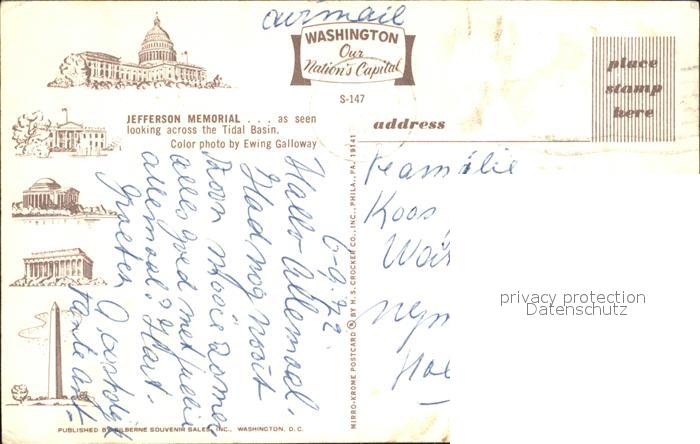 airmail
WASHINGTON
Our
Nation's Capital
S-147
place
stamp
here
JEFFERSON MEMORIAL . . . as seen
looking across the Tidal Basin.
Color photo by Ewing Galloway
address
6-9.'72
Hallo Allemaal.
Had nog nooit
zoon mooie zomer
alles goed met jullie
allemaal? Hart.
Groeten
Tante
Familie
Koos
MIRRO-KROME POSTCARD ® BY H. S. CROCKER CO., INC., PHILA., PA. 19141
privacy protection
Datenschutz
PUBLISHED BY SILBERNE SOUVENIR SALES, INC., WASHINGTON, D. C.